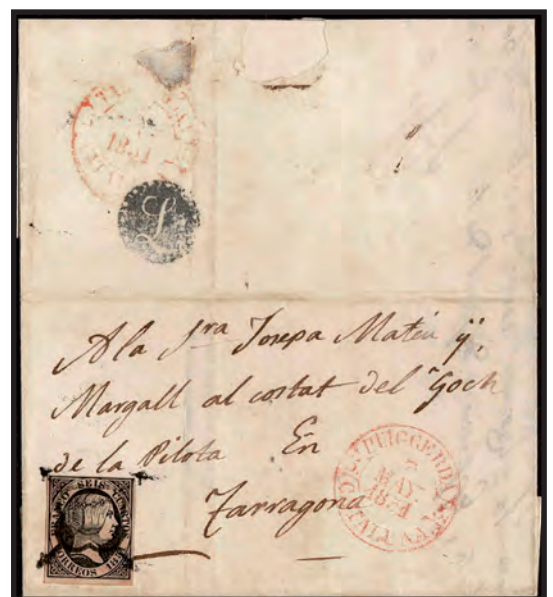 1851
L
A la Sra Josepa Mateu ÿ
Margall al costat del Goch
de la Pilota En
Tarragona
PUIGCERDA
MAY
1851
CATALUÑA
FRANCO SEIS CUARTOS
CORREOS 1851